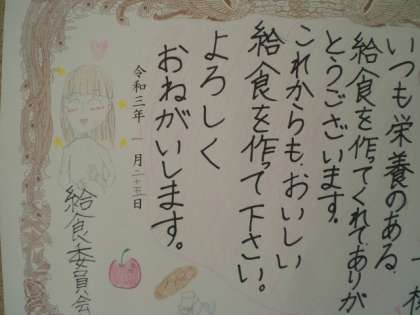 いつも栄養のある
給食を作ってくれてありが
とうございます。
これからも、おいしい
給食を作って下さい。
よろしく
おねがいします。
令和三年 一月二十五日
給食委員会